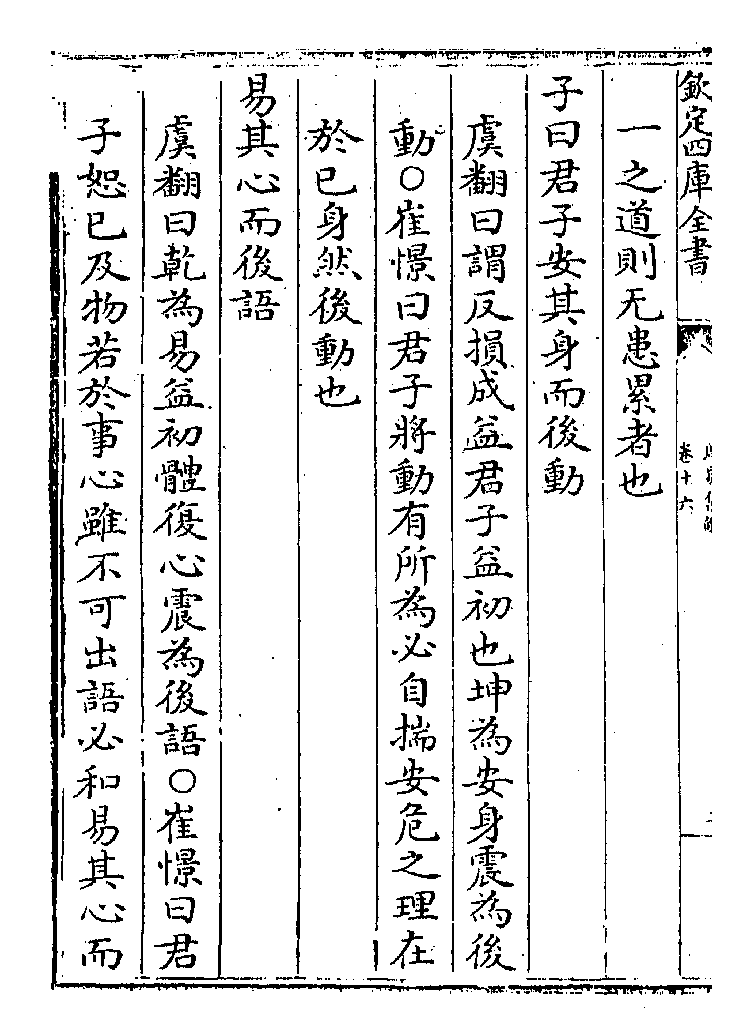 欽定四庫全書
卷十六
一之道則无患累者也
子曰君子安其身而後動
虞翻曰謂反損成益君子益初也坤為安身震為後
動○崔憬曰君子將動有所為必自揣安危之理在
於已身然後動也
易其心而後語
虞翻曰乾為易益初體復心震為後語○崔憬曰君
子恕已及物若於事心雖不可出語必和易其心而